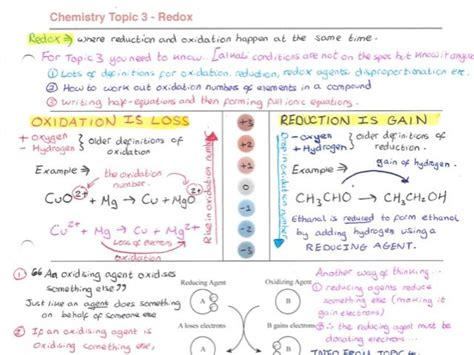 Chemistry Topic 3 - Redox
Redox ⇒ where reduction and oxidation happen at the same time.
For Topic 3 you need to know... [alkali conditions are not on the spec but know it anyway
① Lots of definitions for oxidation, reduction, redox agents, disproportionation etc.
② How to work out oxidation numbers of elements in a compound
③ Writing half-equations and then forming full ionic equations.
OXIDATION IS LOSS
+ Oxygen
- Hydrogen
} Older definitions of oxidation
Example ⇒ the oxidation number.
CuO²⁺ + Mg → Cu + MgO²⁺
Cu²⁺ + Mg → Cu + Mg²⁺
Loss of electrons
oxidation
Rise in oxidation number
+3
+2
+1
0
-1
-2
-3
Drop in oxidation number
REDUCTION IS GAIN
- oxygen
+ Hydrogen
} Older definitions of reduction.
Example ⇒ gain of hydrogen.
CH₃CHO → CH₃CH₂OH
Ethanal is reduced to form ethanol
by adding hydrogen using a
REDUCING AGENT.
① "An oxidising agent oxidises
something else"
Just like an agent does something
on behalf of someone else
② If an oxidising agent is
Reducing Agent
Oxidizing Agent
A
B
A loses electrons
B gains electrons
A
B
Another way of thinking...
① reducing agents reduce
something else (making it
gain electrons)
② ∴ the reducing agent must
be donating electrons...